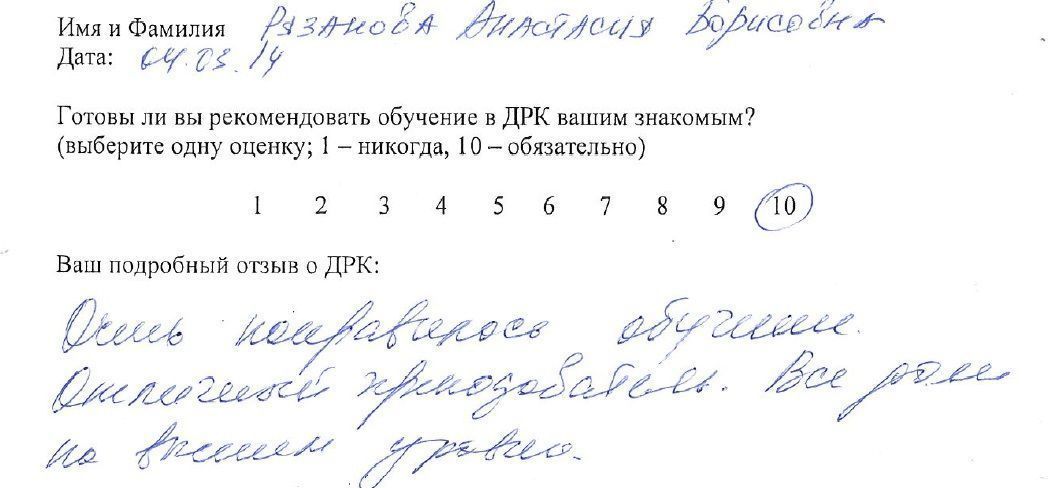 Имя и Фамилия Рязанова Анастасия Борисовна
Дата: 04.03.14
Готовы ли вы рекомендовать обучение в ДРК вашим знакомым?
(выберите одну оценку; 1 – никогда, 10 – обязательно)
1 2 3 4 5 6 7 8 9 10
Ваш подробный отзыв о ДРК:
Очень понравилось обучение.
Отличный преподаватель. Все
на высшем уровне.